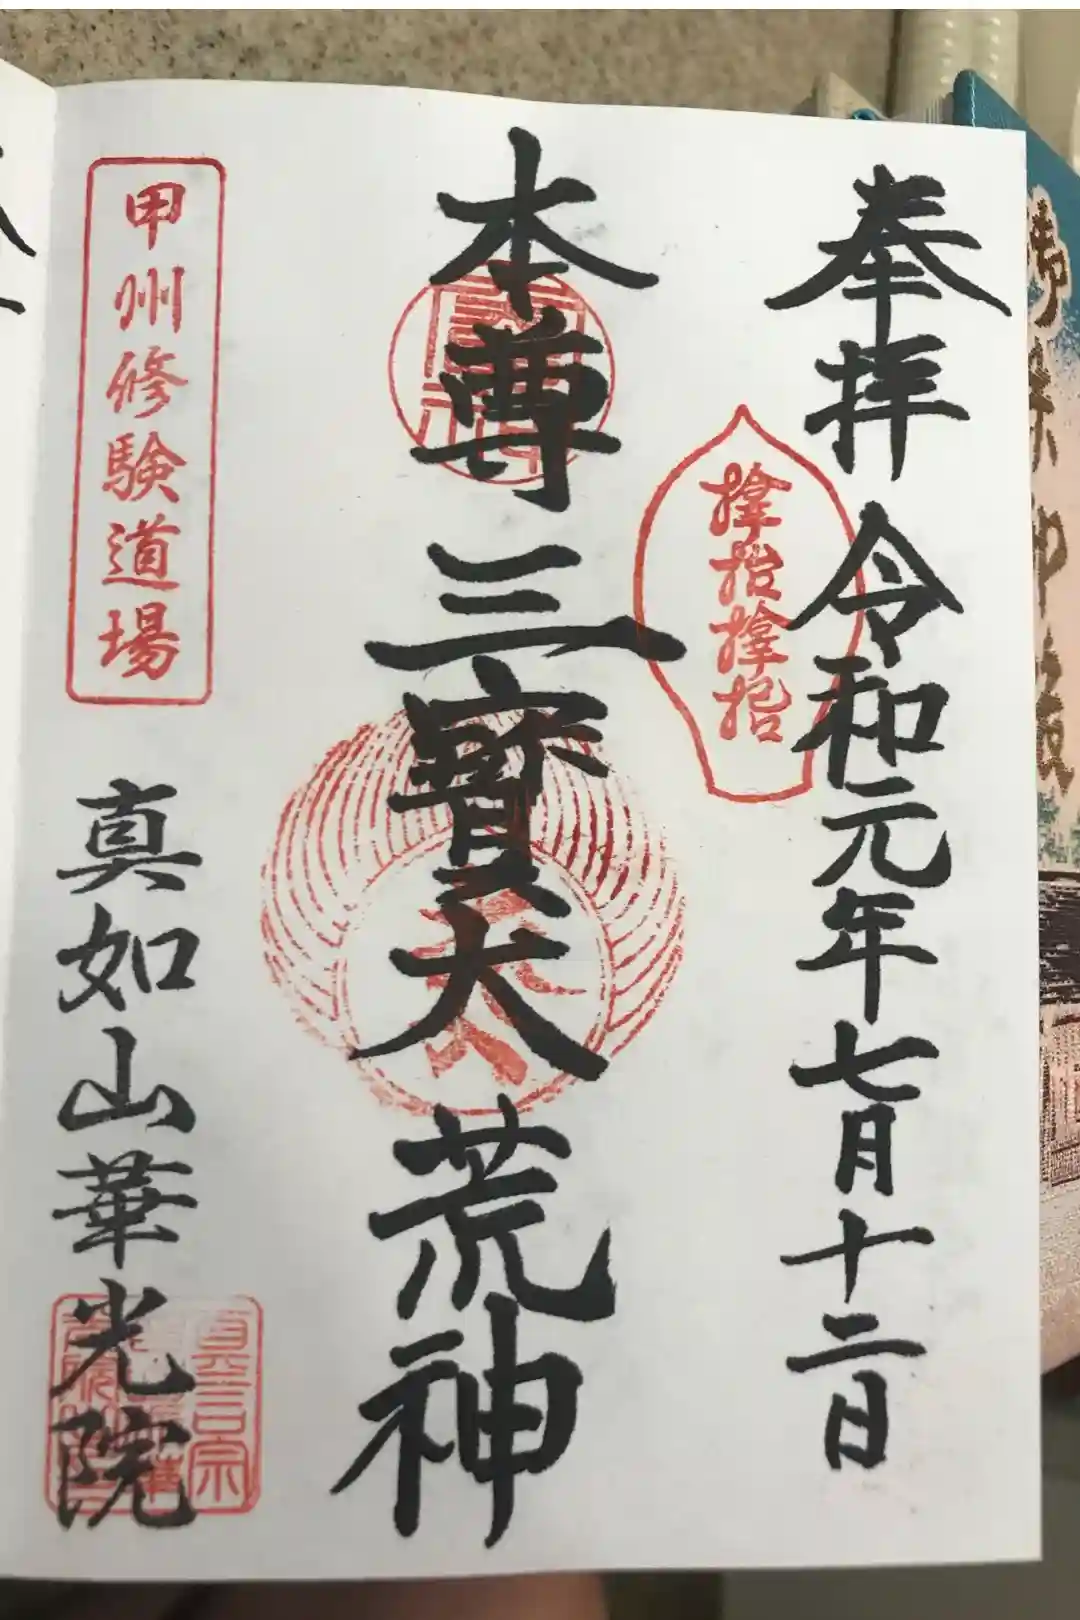 奉拝 令和元年七月十二日
本尊三寳大荒神
甲州修験道場
真如山華光院
真言宗